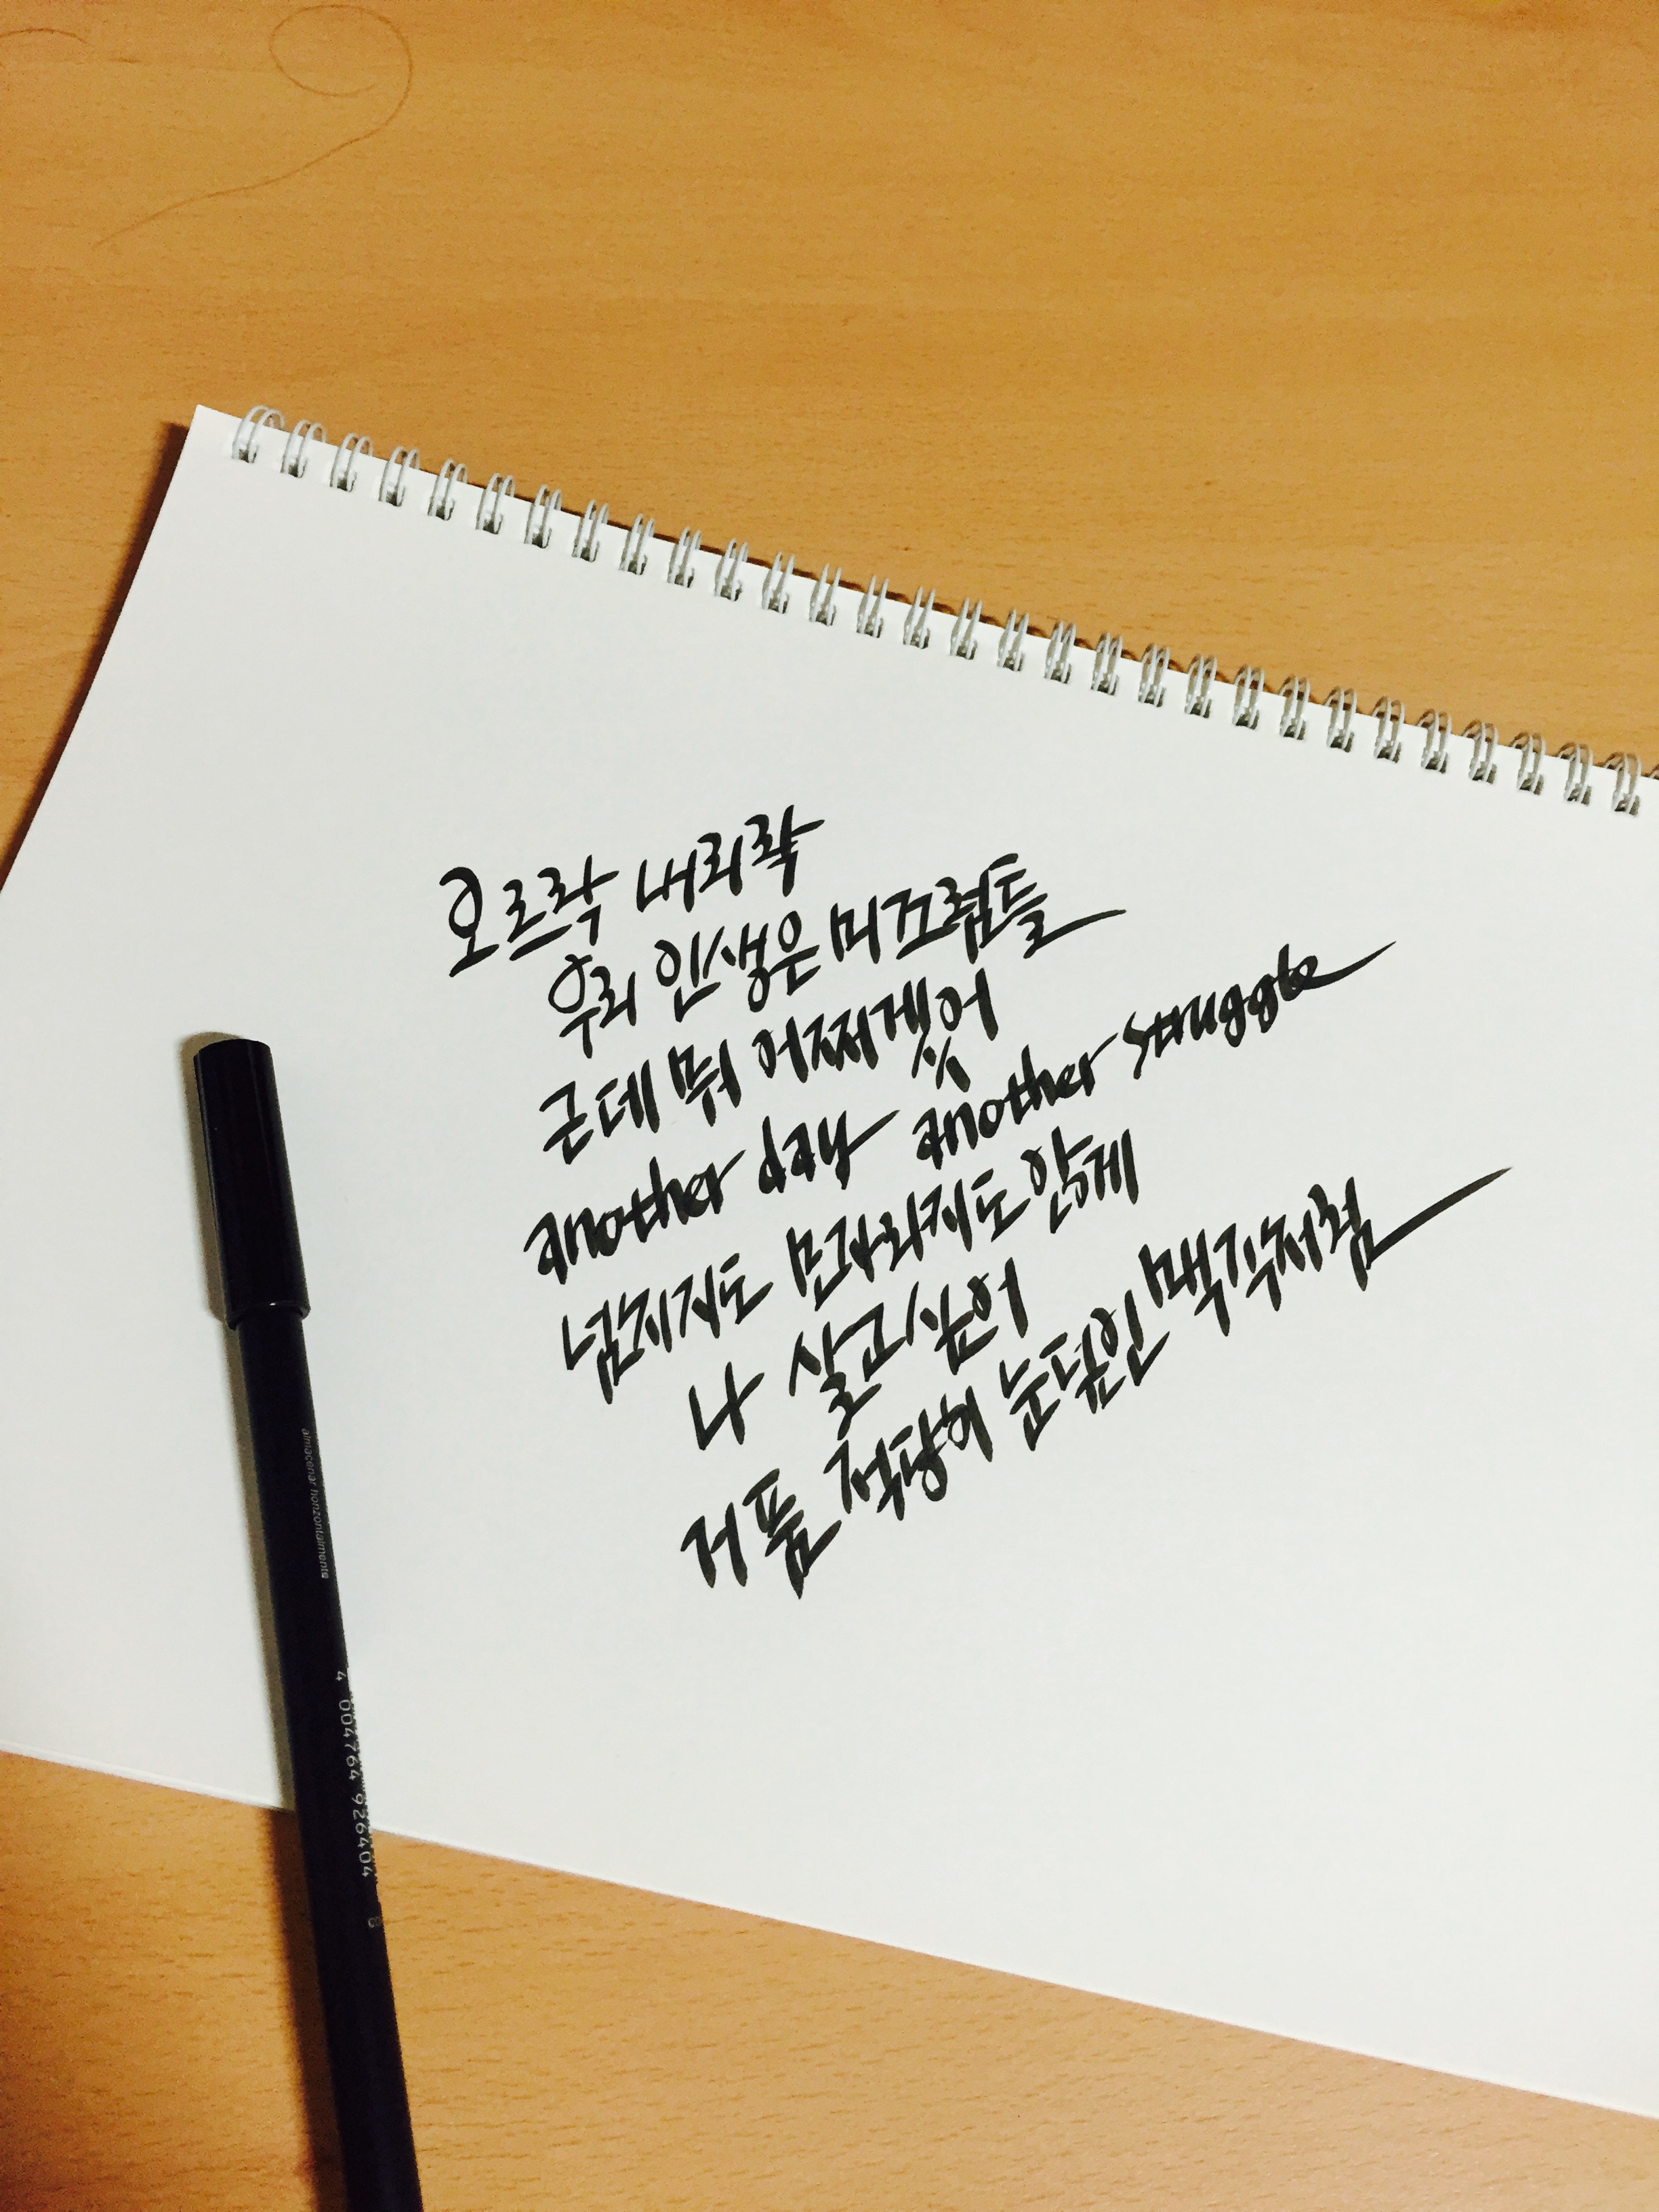 오르락 내리락
우리 인생은 미끄럼틀
근데 뭐 어쩌겠어
another day another struggle
넘치지도 모자라지도 않게
나 살고싶어
거품 적당히 눈덮인 맥주처럼
almacenar horizontalmente
4 004764 926404 8